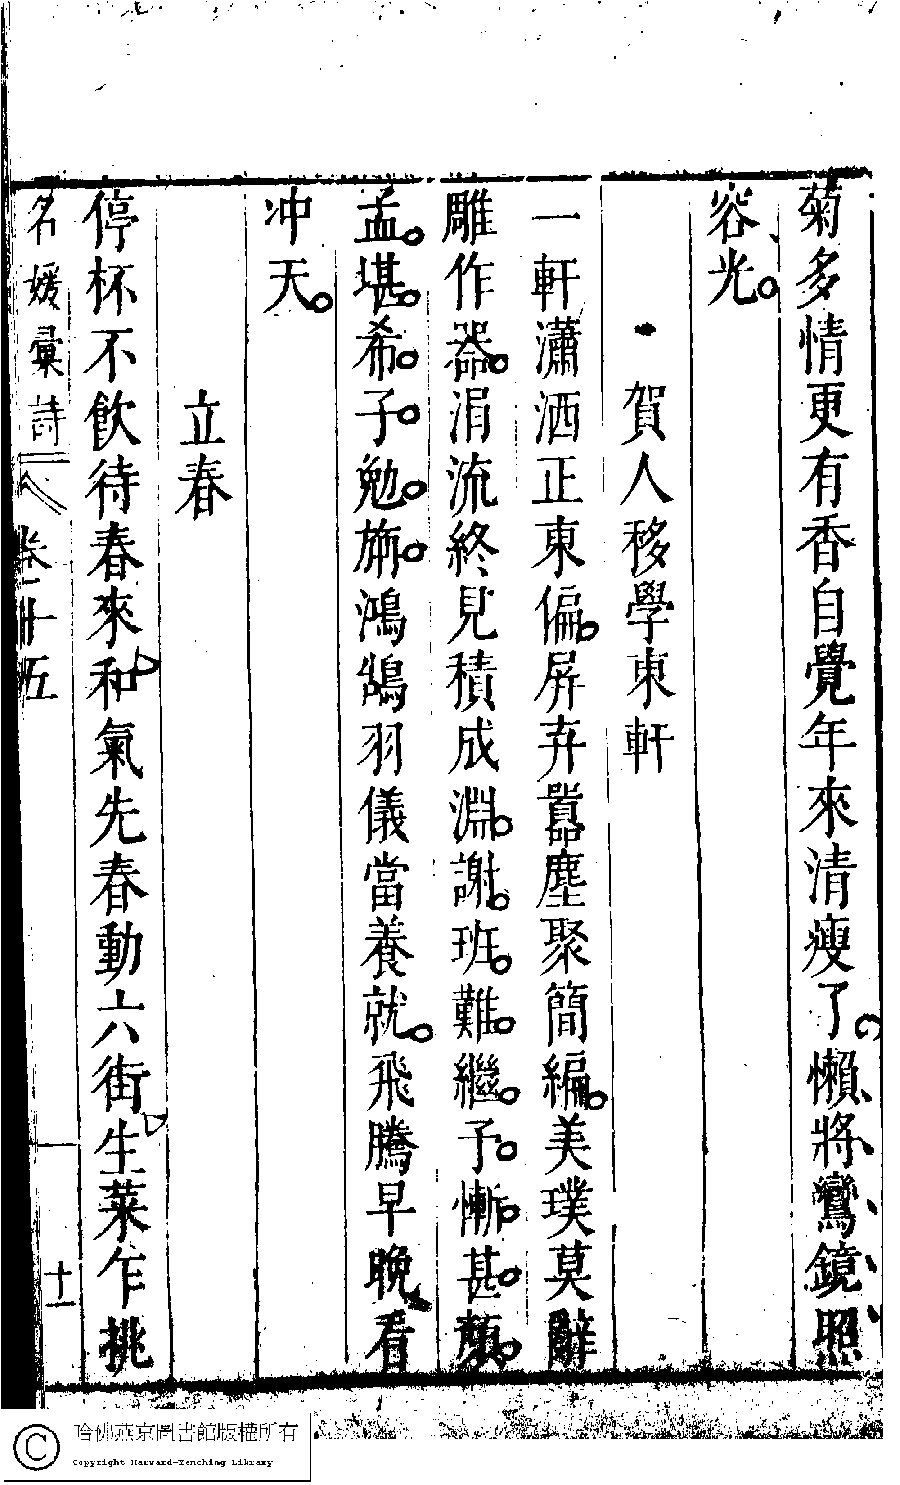 菊多情更有香自覺年來清瘦了懶將鸞鏡照
容光
賀人移學東軒
一軒瀟洒正東偏屛弃囂塵聚簡編美璞莫辭
雕作器涓流終見積成淵謝班難繼予慚甚顏
孟堪希子勉旃鴻鵠羽儀當養就飛騰早晚看
冲天
立春
停杯不飲待春來和氣先春動六街生菜乍挑
名媛彙詩
卷十五
十一
哈佛燕京圖書館版權所有
Copyright Harvard-Yenching Library